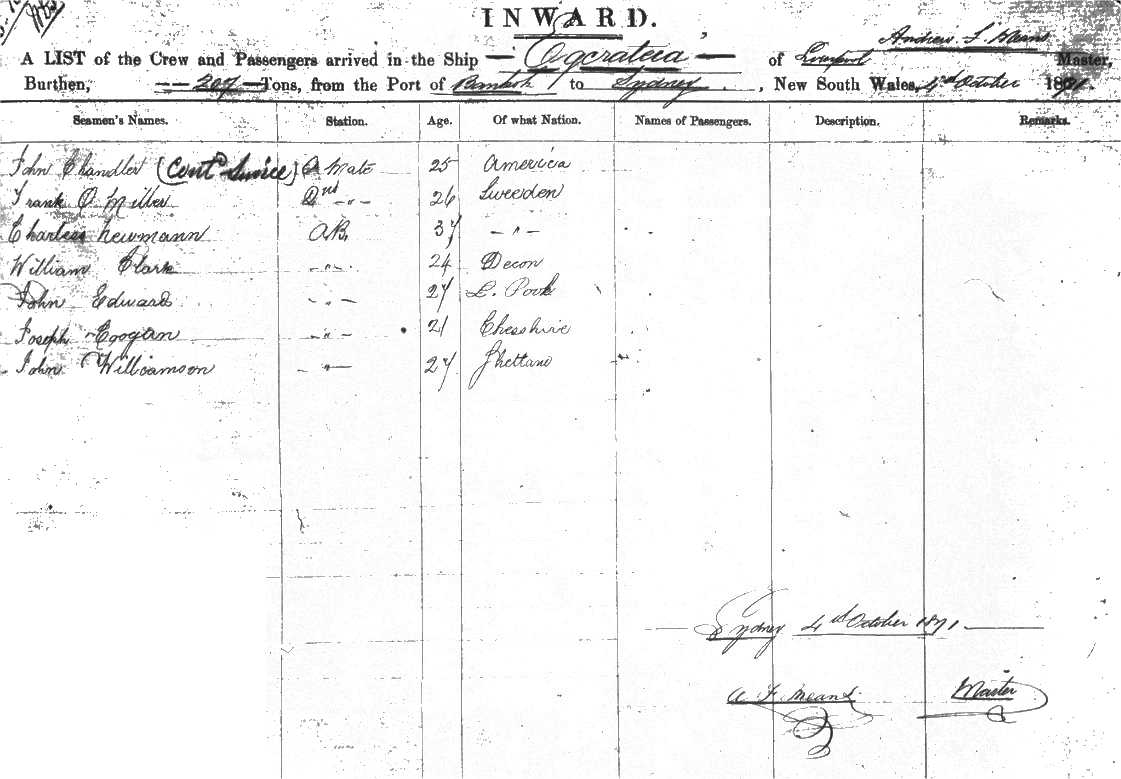 INWARD.
Andrew F.
A LIST of the Crew and Passengers arrived in the Ship — "Egerateia" — of Liverpool Master,
Burthen, — 207 — Tons, from the Port of to Sydney, New South Wales, 4th October 1871.
Seamen's Names. Station. Age. Of what Nation. Names of Passengers. Description. Remarks.
John Chandler (Contd Service) Mate 25 America
Frank O Miller 2nd — " — 26 Sweeden
Charless Newmann A.B. 37 — " —
William Clark — " — 24 Devon
John Edward — " — 27 L. Pool
Joseph Coogan — " — 21 Chesshire
John Williamson — " — 27 Shetland
Sydney 4th October 1871
A F Means Master